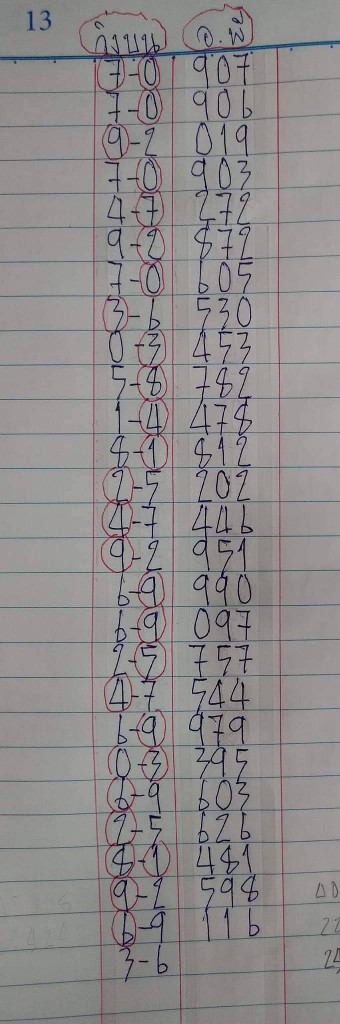 13
วิ่งบน อ.พี
7-0 907
7-0 906
9-2 019
7-0 903
4-7 272
9-2 872
7-0 605
3-6 530
0-3 453
5-8 782
1-4 478
8-1 812
2-5 202
4-7 446
9-2 951
6-9 990
6-9 097
2-5 757
4-7 544
6-9 979
0-3 395
6-9 603
2-5 626
8-1 481
9-2 598
6-9 116
3-6